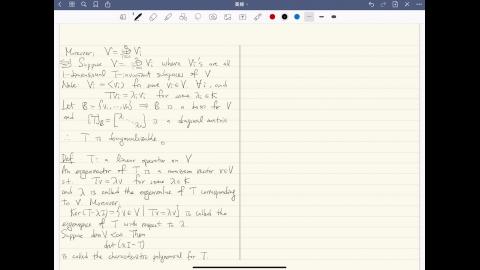 Moreover, V = ⊕ Vi
Suppose V = ⊕ Vi where Vi's are all
1-dimensional T-invariant subspaces of V
Note Vi = <vi> for some vi ∈ V. ∀i, and
Tvi = λi vi for some λi ∈ K
Let B = {v1, ..., vn} ⇒ B is a basis for V
and [T]B = [λ1 ⋱ λn] is a diagonal matrix
∴ T is diagonalizable.
Def T: a linear operator on V
An eigenvector of T is a nonzero vector v∈V
s.t. Tv = λv for some λ∈K
and λ is called the eigenvalue of T corresponding
to v. Moreover,
Ker(T-λI) = {v∈V | Tv = λv} is called the
eigenspace of T with respect to λ.
Suppose dim V < ∞. Then
det(xI-T)
is called the characteristic polynomial for T.